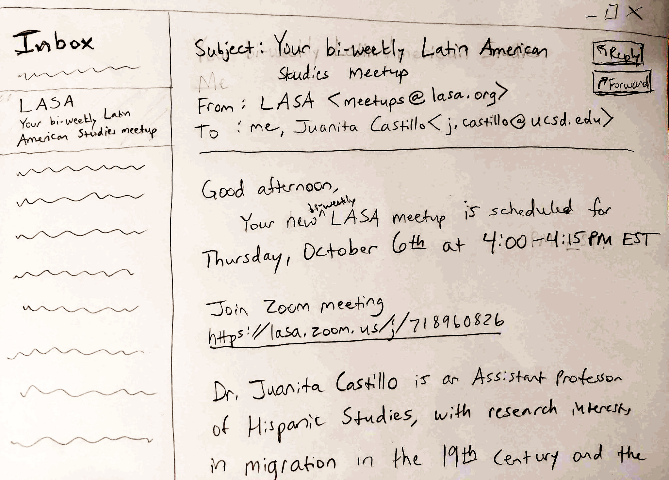 Inbox
LASA
Your bi-weekly Latin
American Studies meetup
Subject: Your bi-weekly Latin American
Studies meetup
Reply
Forward
From: LASA <meetups@lasa.org>
To: me, Juanita Castillo<j.castillo@ucsd.edu>
Good afternoon,
Your new bi-weekly LASA meetup is scheduled for
Thursday, October 6th at 4:00-4:15 PM EST
Join Zoom meeting
https://lasa.zoom.us/j/718960826
Dr. Juanita Castillo is an Assistant Professor
of Hispanic Studies, with research interests
in migration in the 19th Century and the